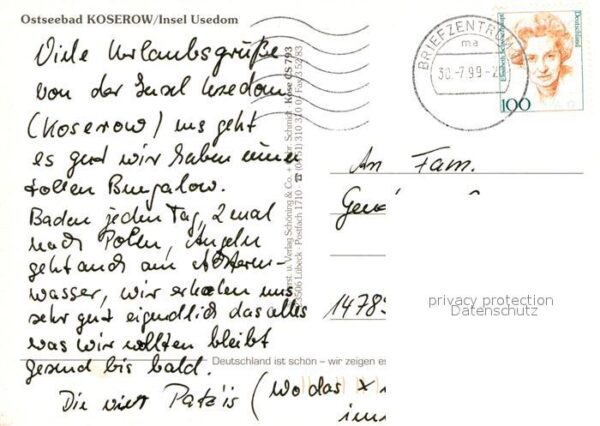 Ostseebad KOSEROW/Insel Usedom
Viele Urlaubsgrüße
von der Insel Usedom
(Koserow) uns geht
es gut wir haben einen
tollen Bungalow.
Baden jeden Tag, 2 mal
nach Polen, Angeln
geht auch am
wasser, wir erholen uns
sehr gut eigendlich das alles
was wir wollten bleibt
gesund bis bald.
Die vier (wo das
Verlag Schöning & Co. + Schmidt · Kose CS 793
23506 Lübeck · Postfach 1710 · ☎ (0451) 310 310
Deutschland ist schön – wir zeigen es
BRIEFZENTRUM
ma
30.-7.99-2
Deutschland
Elisabeth Schwarzhaupt
100
An Fam.
1478
privacy protection
Datenschutz